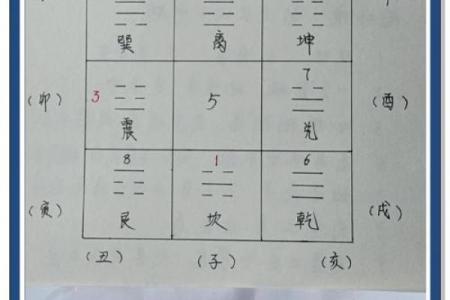 巽 离 坤
7
(卯) 3 5 (酉)
震 兑
8 1 6
(寅) (戌)
艮 坎 乾
(丑) (子) (亥)